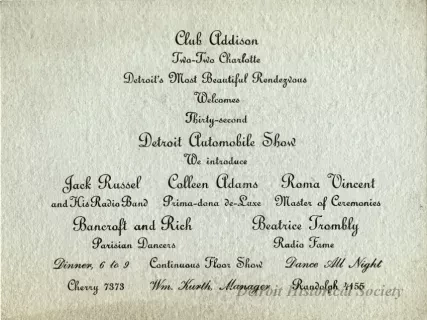 Club Addison
Two-Two Charlotte
Detroit's Most Beautiful Rendezvous
Welcomes
Thirty-second
Detroit Automobile Show
We introduce
Jack Russel Colleen Adams Roma Vincent
and His Radio Band Prima-dona de-Luxe Master of Ceremonies
Bancroft and Rich Beatrice Trombly
Parisian Dancers Radio Fame
Dinner, 6 to 9 Continuous Floor Show Dance All Night
Cherry 7373 Wm. Kurth, Manager Randolph 4155
Detroit Historical Society